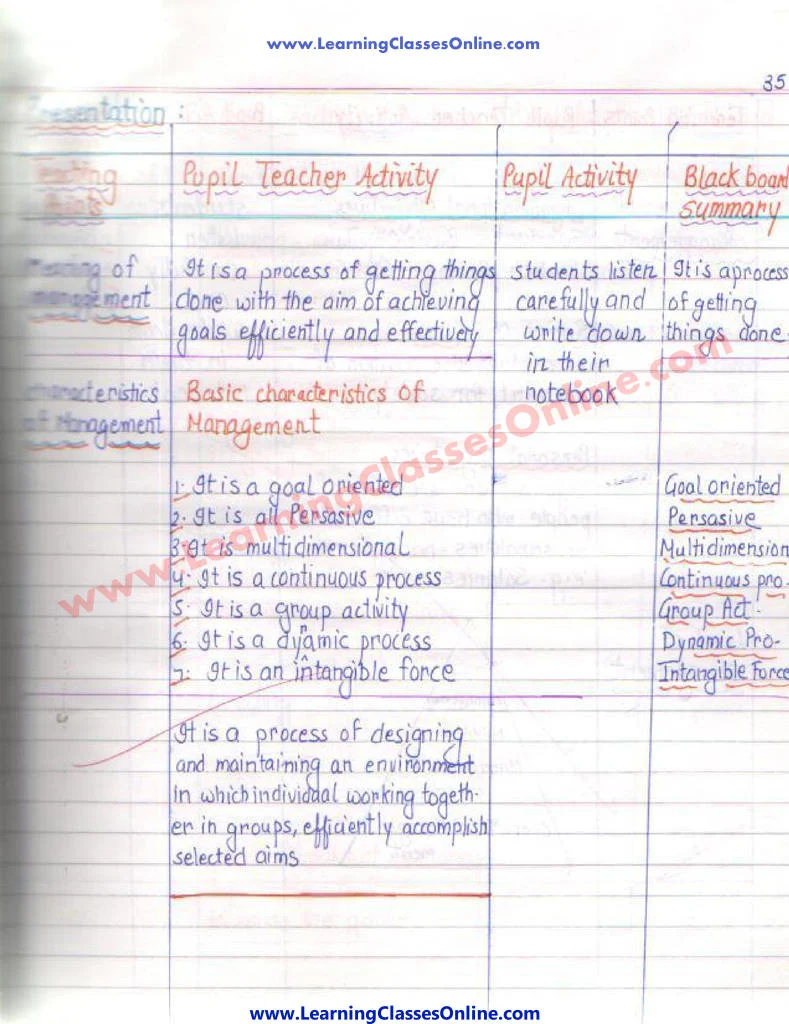 www.LearningClassesOnline.com
35
Presentation :
Teaching Points
Pupil Teacher Activity
Pupil Activity
Black board
summary
Meaning of
management
It is a process of getting things
done with the aim of achieving
goals efficiently and effectively
students listen
carefully and
write down
in their
notebook
It is aprocess
of getting
things done.
Characteristics
of Management
Basic characteristics of
Management
1. It is a goal oriented
2. It is all Persasive
3. It is multidimensional
4. It is a continuous process
5. It is a group activity
6. It is a dynamic process
7. It is an intangible force
Goal oriented
Persasive
Multidimension
Continuous pro.
Group Act.
Dynamic Pro-
Intangible Force
It is a process of designing
and maintaining an environment
in which individual working togeth-
er in groups, efficiently accomplish
selected aims
www.LearningClassesOnline.com
www.LearningClassesOnline.com